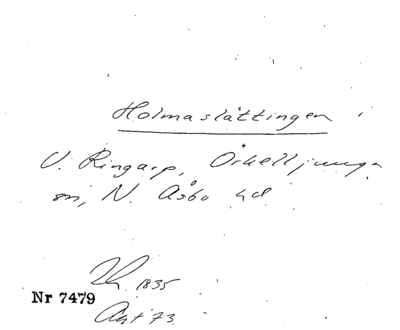 Holmaslättingen
V. Ringarp, Örkelljunga
sn, N. Åsbo hd
1835
Nr 7479
73